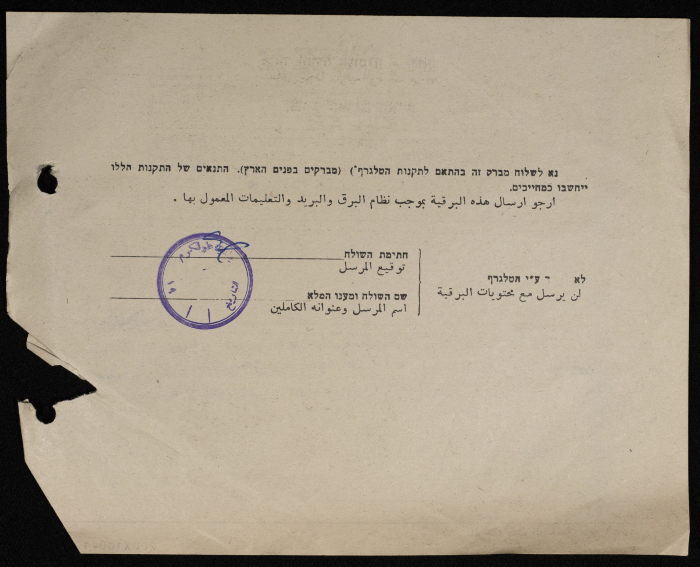 נא לשלוח מברק זה בהתאם לתקנות הטלגרף*) (מברקים בפנים הארץ). התנאים של התקנות הללו
ייחשבו כמחייבים.
ارجو ارسال هذه البرقية بموجب نظام البرق والبريد والتعليمات المعمول بها .
חתימת השולח
توقيع المرسل
שם השולח ומענו המלא
اسم المرسل وعنوانه الكاملين
לא ע״י הטלגרף
لن يرسل مع محتويات البرقية
طولكرم
التاريخ
١٩